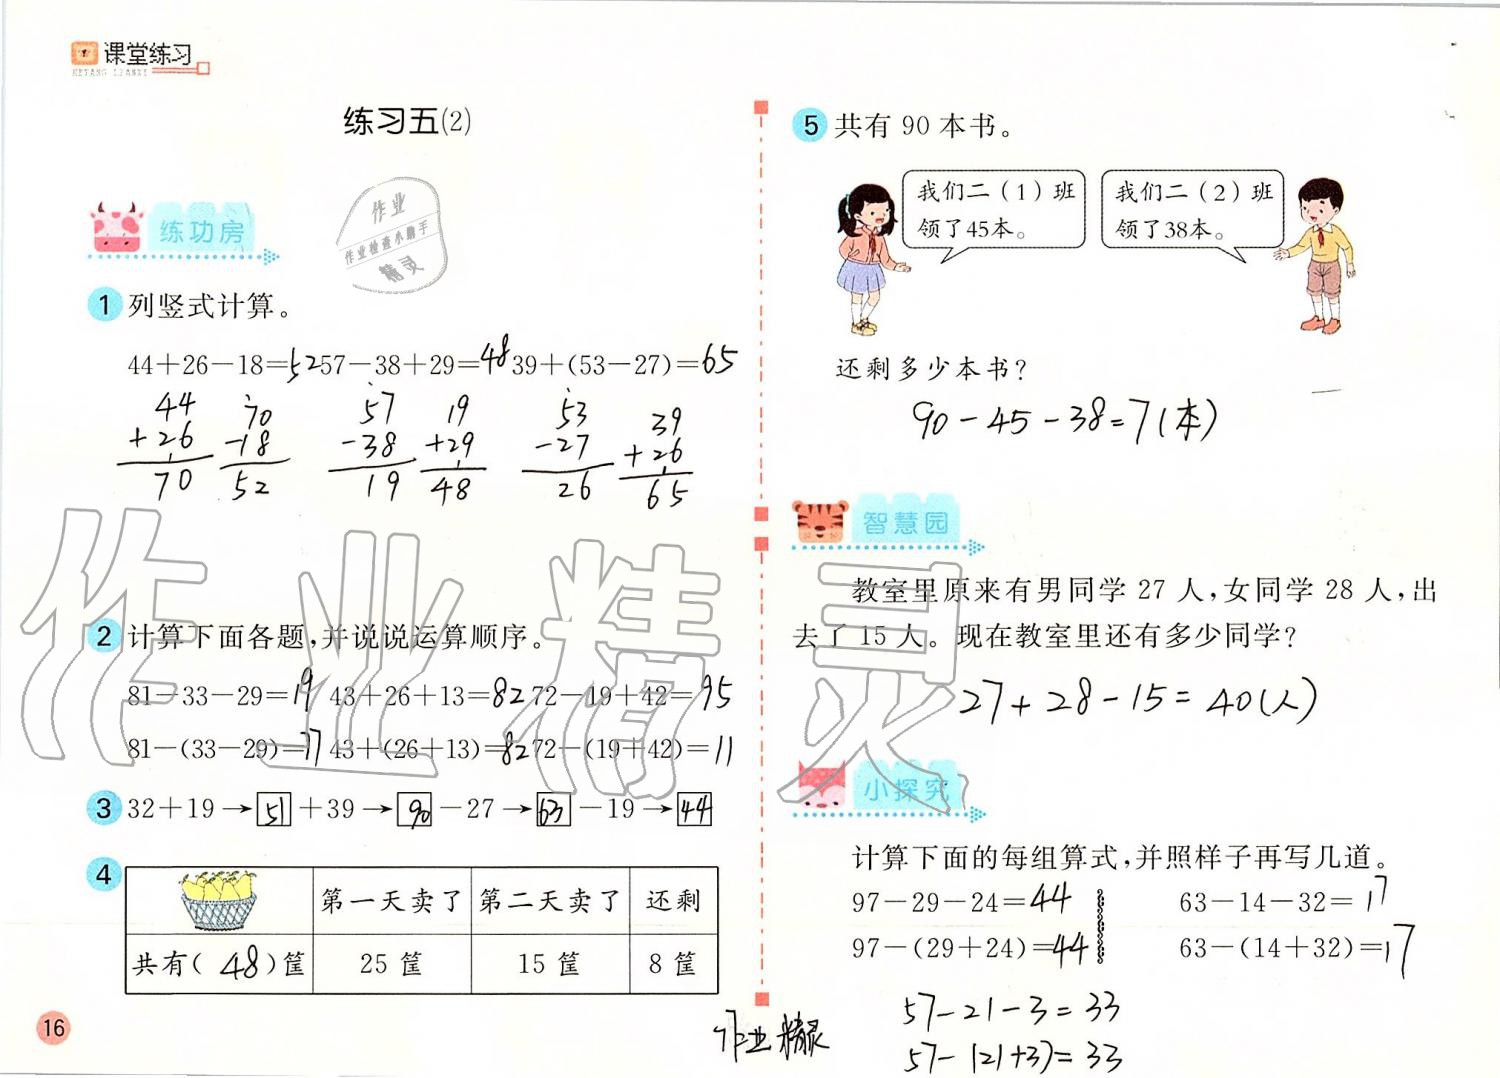 课堂练习
KETANG LIANXI
练习五(2)
作业
作业检查小助手
精灵
练功房
1 列竖式计算。
44+26-18=52 57-38+29=48 39+(53-27)=65
44 70 57 19 53 39
+26 -18 -38 +29 -27 +26
70 52 19 48 26 65
2 计算下面各题,并说说运算顺序。
81-33-29=19 43+26+13=82 72-19+42=95
81-(33-29)=77 43+(26+13)=82 72-(19+42)=11
3 32+19→51+39→90-27→63-19→44
4
第一天卖了 第二天卖了 还剩
共有(48)筐 25筐 15筐 8筐
16
5 共有90本书。
我们二(1)班
领了45本。
我们二(2)班
领了38本。
还剩多少本书?
90-45-38=7(本)
智慧园
教室里原来有男同学27人,女同学28人,出
去了15人。现在教室里还有多少同学?
27+28-15=40(人)
小探究
计算下面的每组算式,并照样子再写几道。
97-29-24=44 63-14-32=17
97-(29+24)=44 63-(14+32)=17
57-21-3=33
57-(21+3)=33
作业精灵
作业精灵